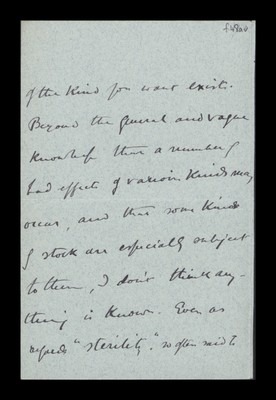 of the kind you want exists.
Beyond the general and vague
knowledge that a number of
bad effects of various kinds may
occur, and that some kinds
of stock are especially subject
to them, I don't think any-
thing is known. Even as
regards "sterility", so often said to